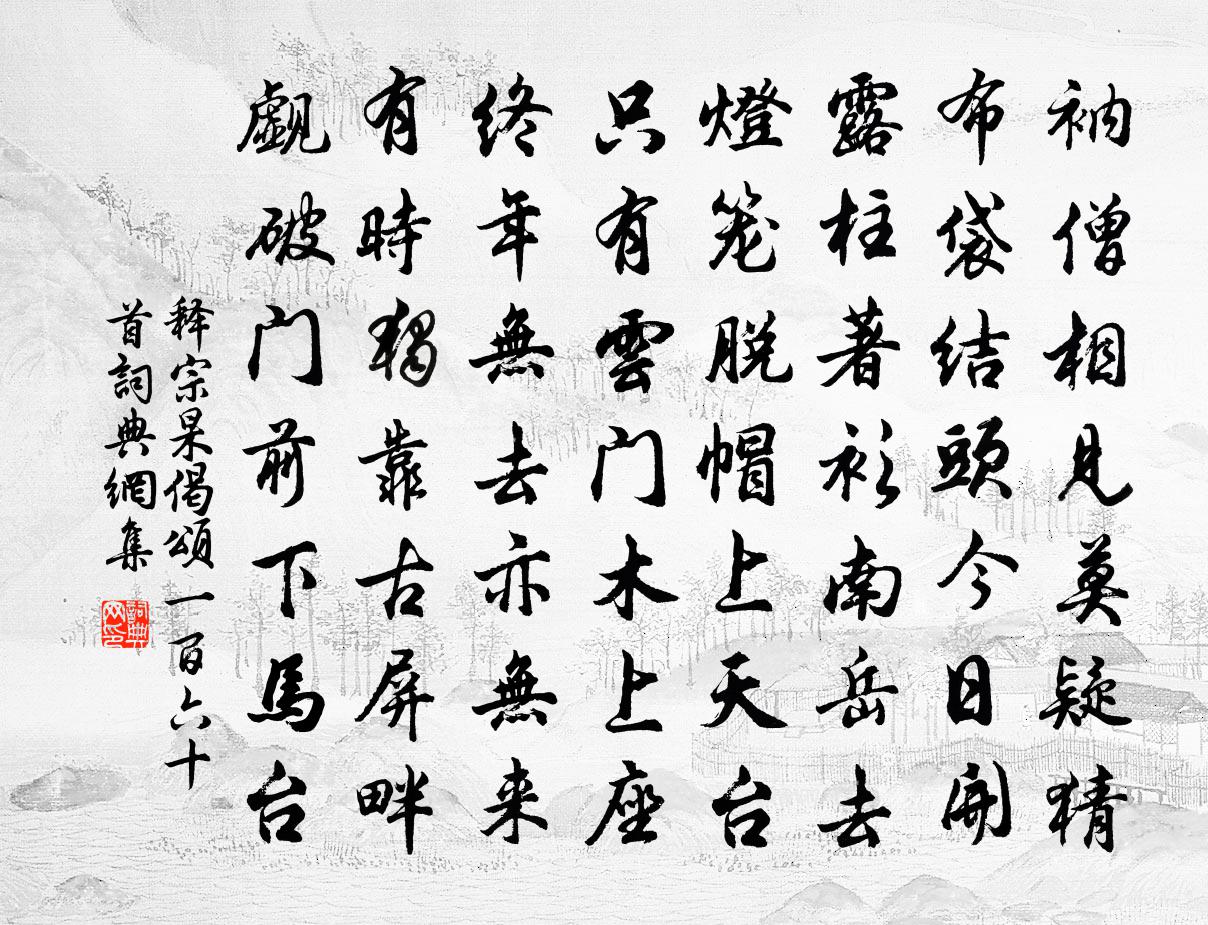 衲僧相見莫疑猜
布袋結頭今日開
露柱著衫南岳去
燈笼脱帽上天台
只有雲门木上座
終年無去亦無来
有時独靠古屏畔
覷破门前下馬台
释宗杲偈頌一百六十
首詞典網集
詞典网印